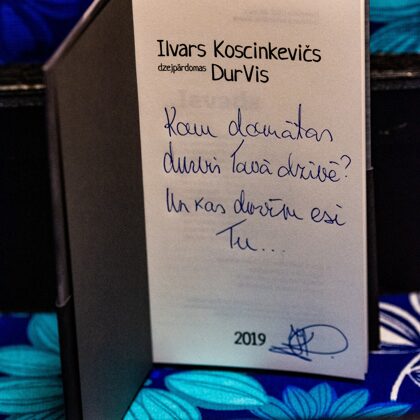 Ilvars Koscinkevičs
dzejpārdomas DurVis
Kam domātas
durvis Tavā dzīvē?
Un kas durvīm esi
Tu...
2019